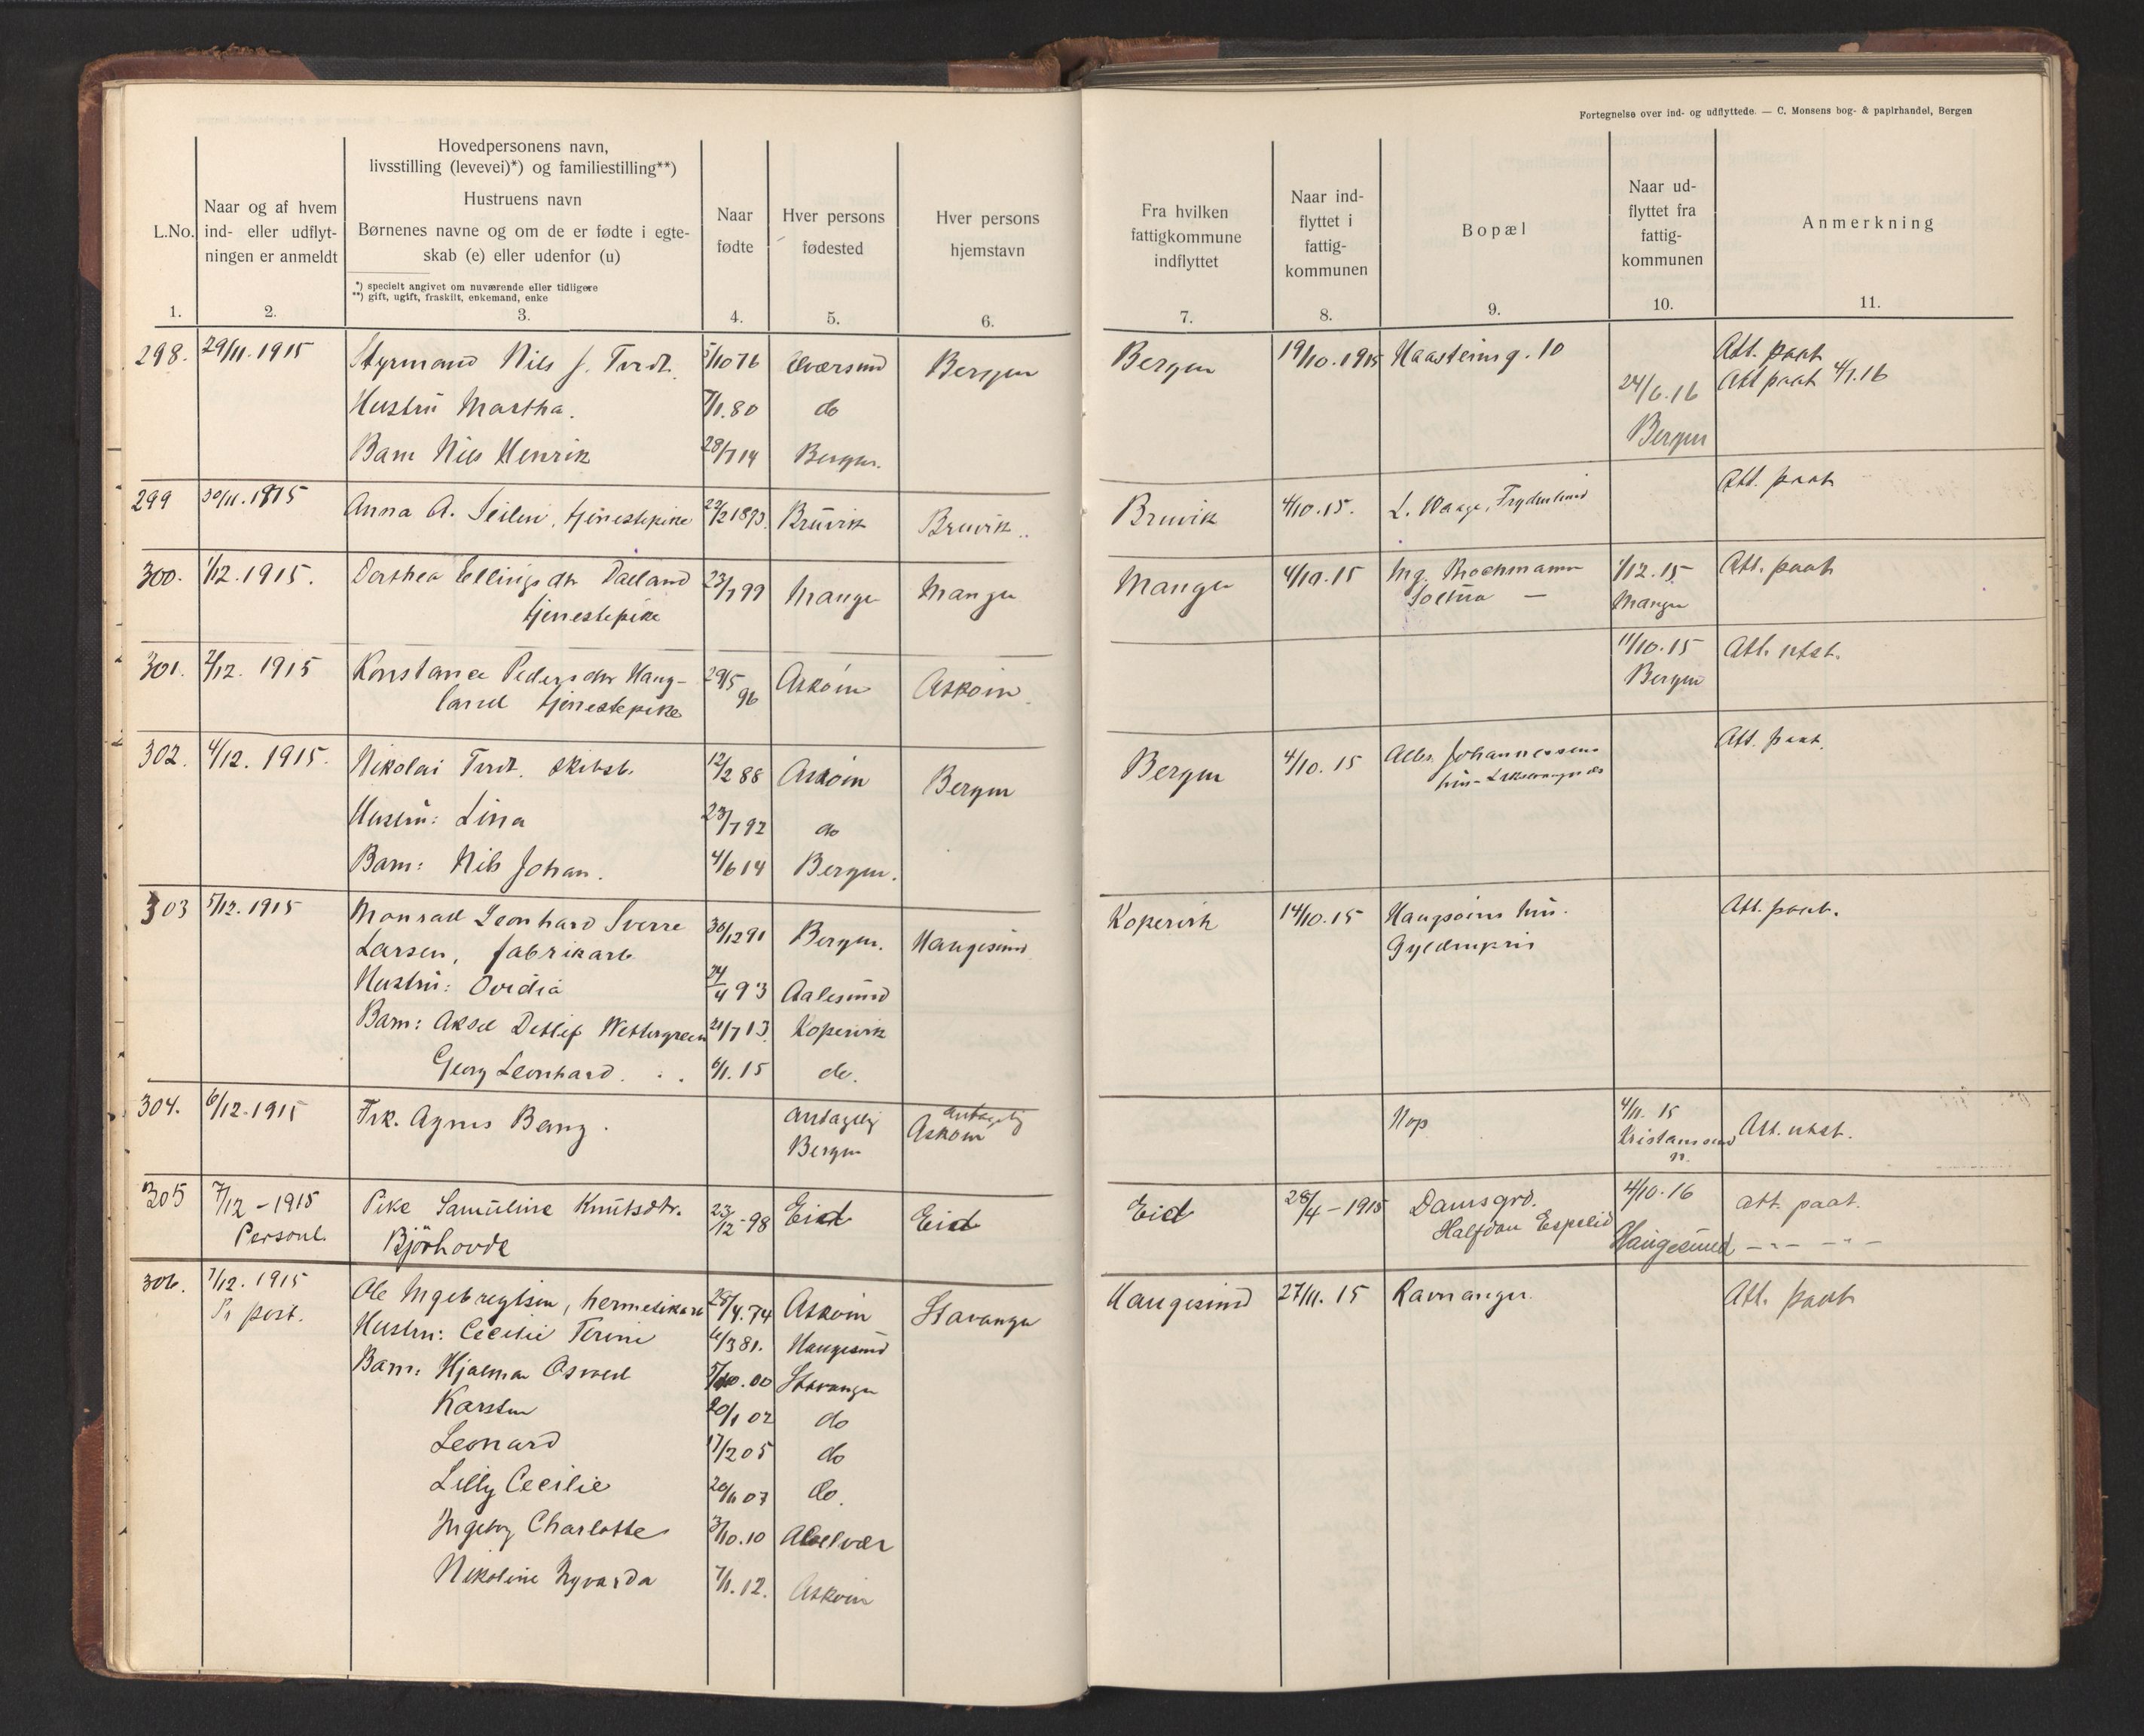 Fortegnelse over ind- og udflyttede. — C. Monsens bog- & papirhandel, Bergen
L.No.
1.
Naar og af hvem
ind- eller udflyt-
ningen er anmeldt
2.
Hovedpersonens navn,
livsstilling (levevei)*) og familiestilling**)
Hustruens navn
Børnenes navne og om de er fødte i egte-
skab (e) eller udenfor (u)
*) specielt angivet om nuværende eller tidligere
**) gift, ugift, fraskilt, enkemand, enke
3.
Naar
fødte
4.
Hver persons
fødested
5.
Hver persons
hjemstavn
6.
Fra hvilken
fattigkommune
indflyttet
7.
Naar ind-
flyttet i
fattig-
kommunen
8.
Bopæl
9.
Naar ud-
flyttet fra
fattig-
kommunen
10.
Anmerkning
11.
298. 29/11. 1915 Styrmand Nils J. Tvedt. 5/10 76 Alversund Bergen Bergen 19/10. 1915 Haasteinsg. 10 Att. paat.
24/6. 16 Att paat 4/7. 16
Hustru Martha. 7/1. 80 do
Bergen
Barn Nils Henrik 28/7 14 Bergen.
299 30/11. 1915 Anna A. tjenestepike 22/2 1893. Bruvik Bruvik Bruvik 4/10. 15. L. Waage, Frydenlund Att. paat
300. 1/12. 1915. Dorthea Ellingsdtr Daeland 23/7 99 Manger Manger Manger 4/10. 15 Ing. Brochmann 1/12. 15 Att. paat
tjenestepike Soltun — Manger
301. 2/12. 1915 Konstance Pedersdtr Haug- 29/5 Askøin Askøin. 11/10. 15 Att. utst.
land tjenestepike 96 Bergen
302. 4/12. 1915. Nikolai Tvedt. skibst. 12/2 88 Askøin Bergen Bergen 4/10. 15 Albr. Johannessens Att. paat.
hus - Laksevaagnes
Hustru: Lina 23/7 92 do
Barn: Nils Johan. 4/6 14 Bergen.
303 5/12. 1915 Monrad Leonhard Sverre 30/12 91 Bergen. Haugesund Kopervik 14/10. 15 Haugsøins hus. Att. paat.
Larsen, fabrikarb. Gyldenpris
Hustru: Ovidia 24/4 93 Aalesund
Barn: Aksel Detlef Wettergreen 21/7 13. Kopervik
Georg Leonhard. . . 6/1. 15 do.
304. 6/12. 1915 Frk. Agnes Bang. antagelig antagelig Nop 4/11. 15 Att. utst.
Bergen Askøin Kristiansund
n.
305 7/12 - 1915 Pike Samuline Knutsdtr. 23/12 - 98 Eid Eid Eid 28/4 - 1915 Damsgrd. 4/10. 16 att. paat.
Personl. Bjørhovde Halfdan Espelid Haugesund — " — — " —
306. 7/12. 1915 Ole Ingebregtsen, hermetikarb 28/4. 74 Askøin Stavanger Haugesund 27/11. 15 Ravnanger. Att. paat
Pr post. Hustru: Cecilie Terine 6/3 81. Haugesund
Barn: Hjalmar Osvald 5/10. 00 Stavanger
Karsten 20/1 02 do
Leonard 17/2 05 do
Lilly Cecilie 20/6 07 do.
Ingeborg Charlotte 3/10. 10
Nikoline 7/1. 12. Askøin